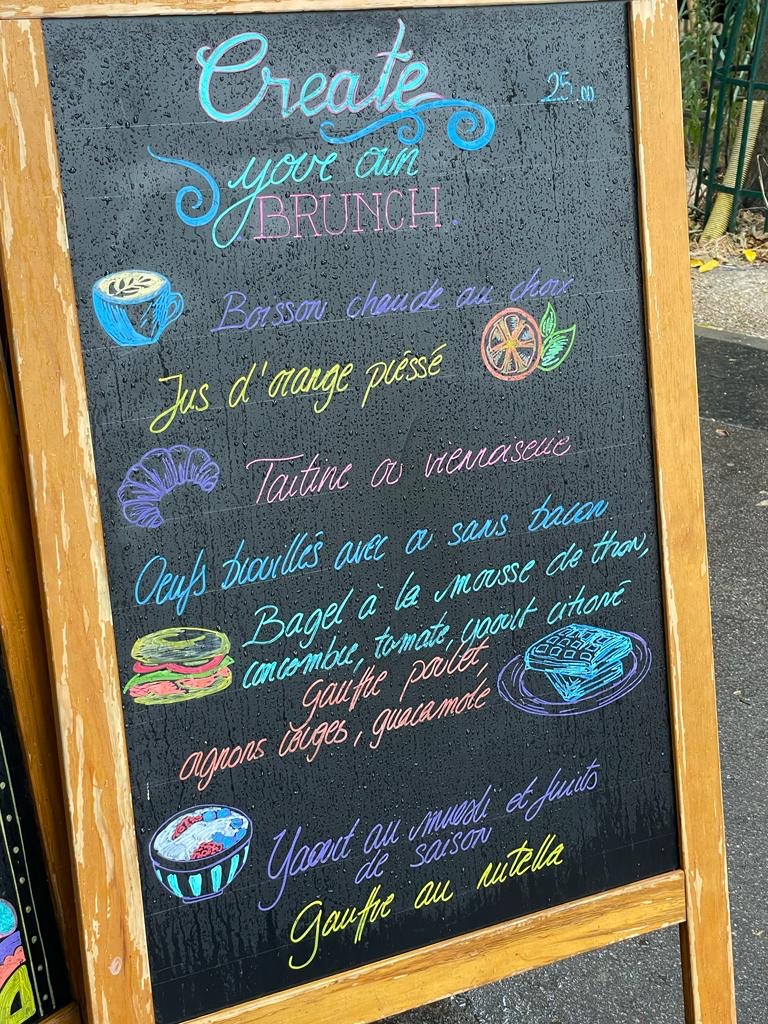 Create
25.00
your own
BRUNCH.
Boisson chaude au choix
Jus d'orange préssé
Tartine ou viennoiserie
Oeufs brouillés avec ou sans bacon
Bagel à la mousse de thon,
concombre, tomate, yaourt citroné
gauffre poulet,
oignons rouges, guacamole
Yaourt au muesli et fruits
de saison
Gauffre au nutella